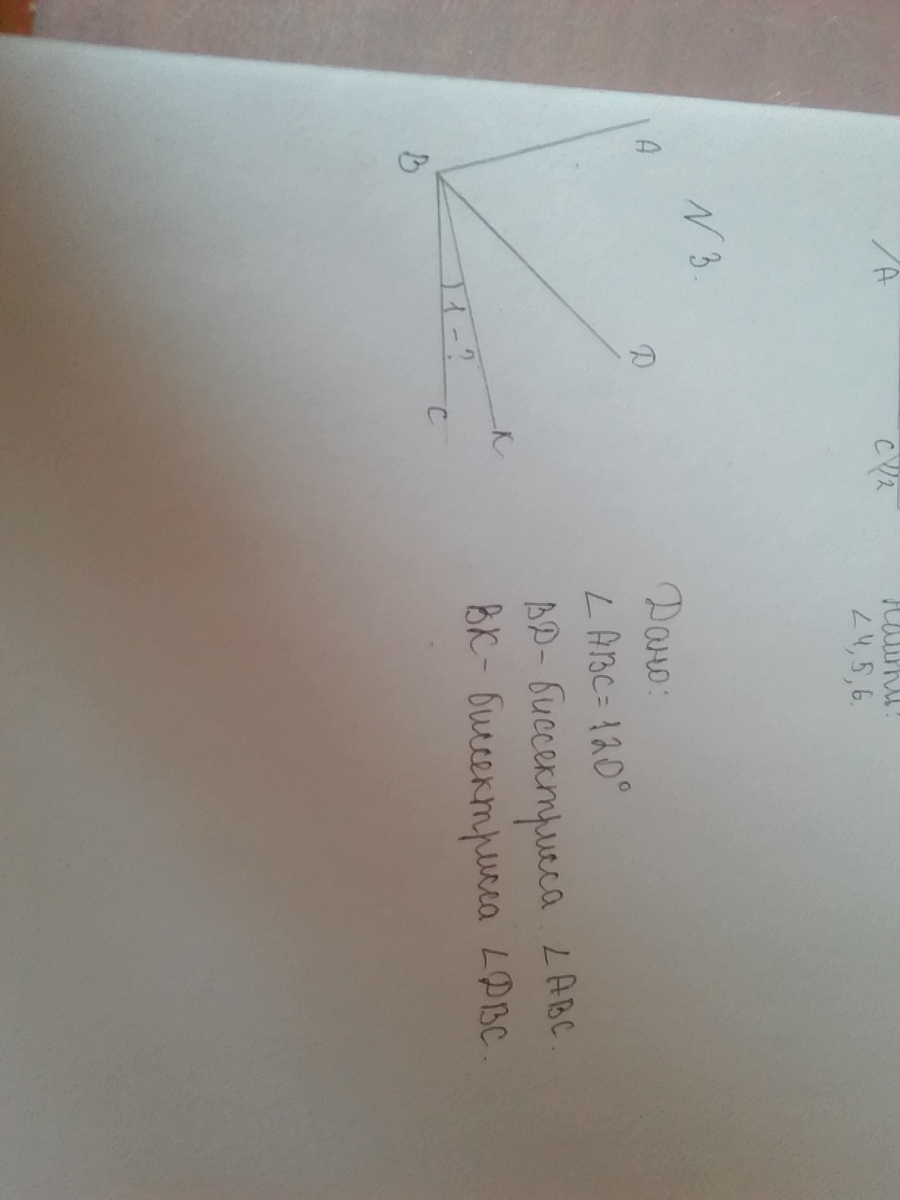 A
C
∥2
Найти:
∠4,5,6.
N3.
A
D
B
1-?
K
C
Дано:
∠ABC=120°
BD-биссектрисса ∠ABC.
BK-биссектрисса ∠DBC.